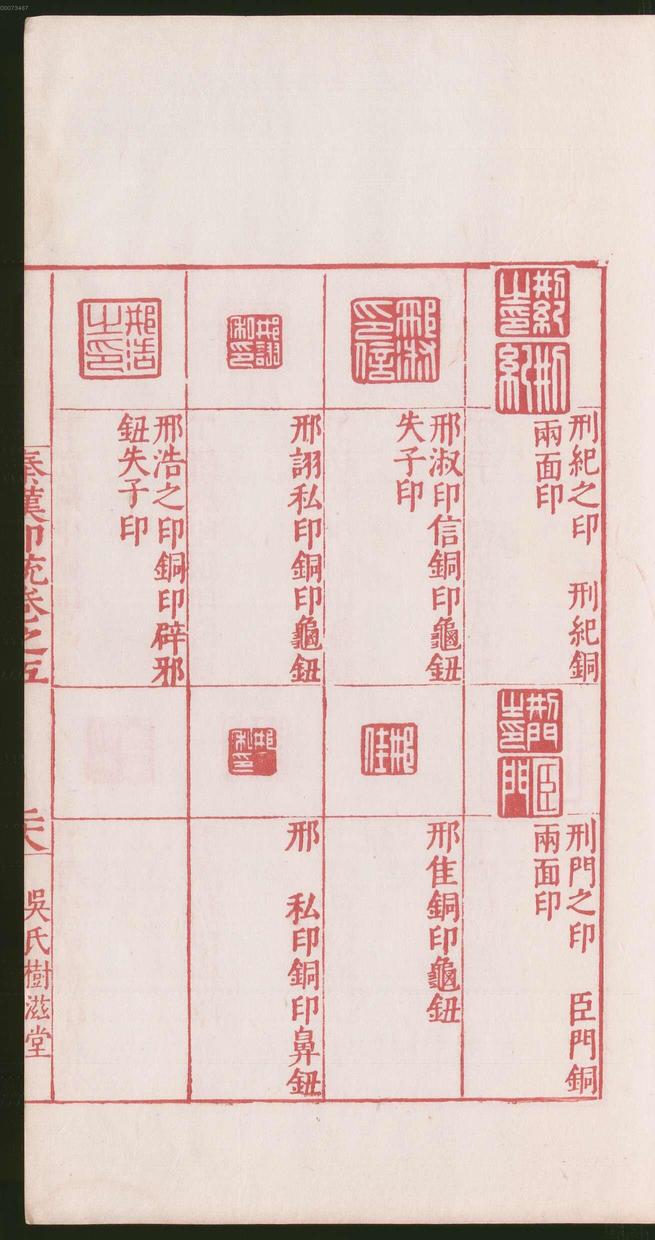 00073467
刑紀之印　刑紀銅
兩面印
邢淑印信銅印龜鈕
失子印
邢詡私印銅印龜鈕
邢浩之印銅印辟邪
鈕失子印
刑門之印　臣門銅
兩面印
邢隹銅印龜鈕
邢　私印銅印鼻鈕
秦漢印統卷之五
吳氏樹滋堂